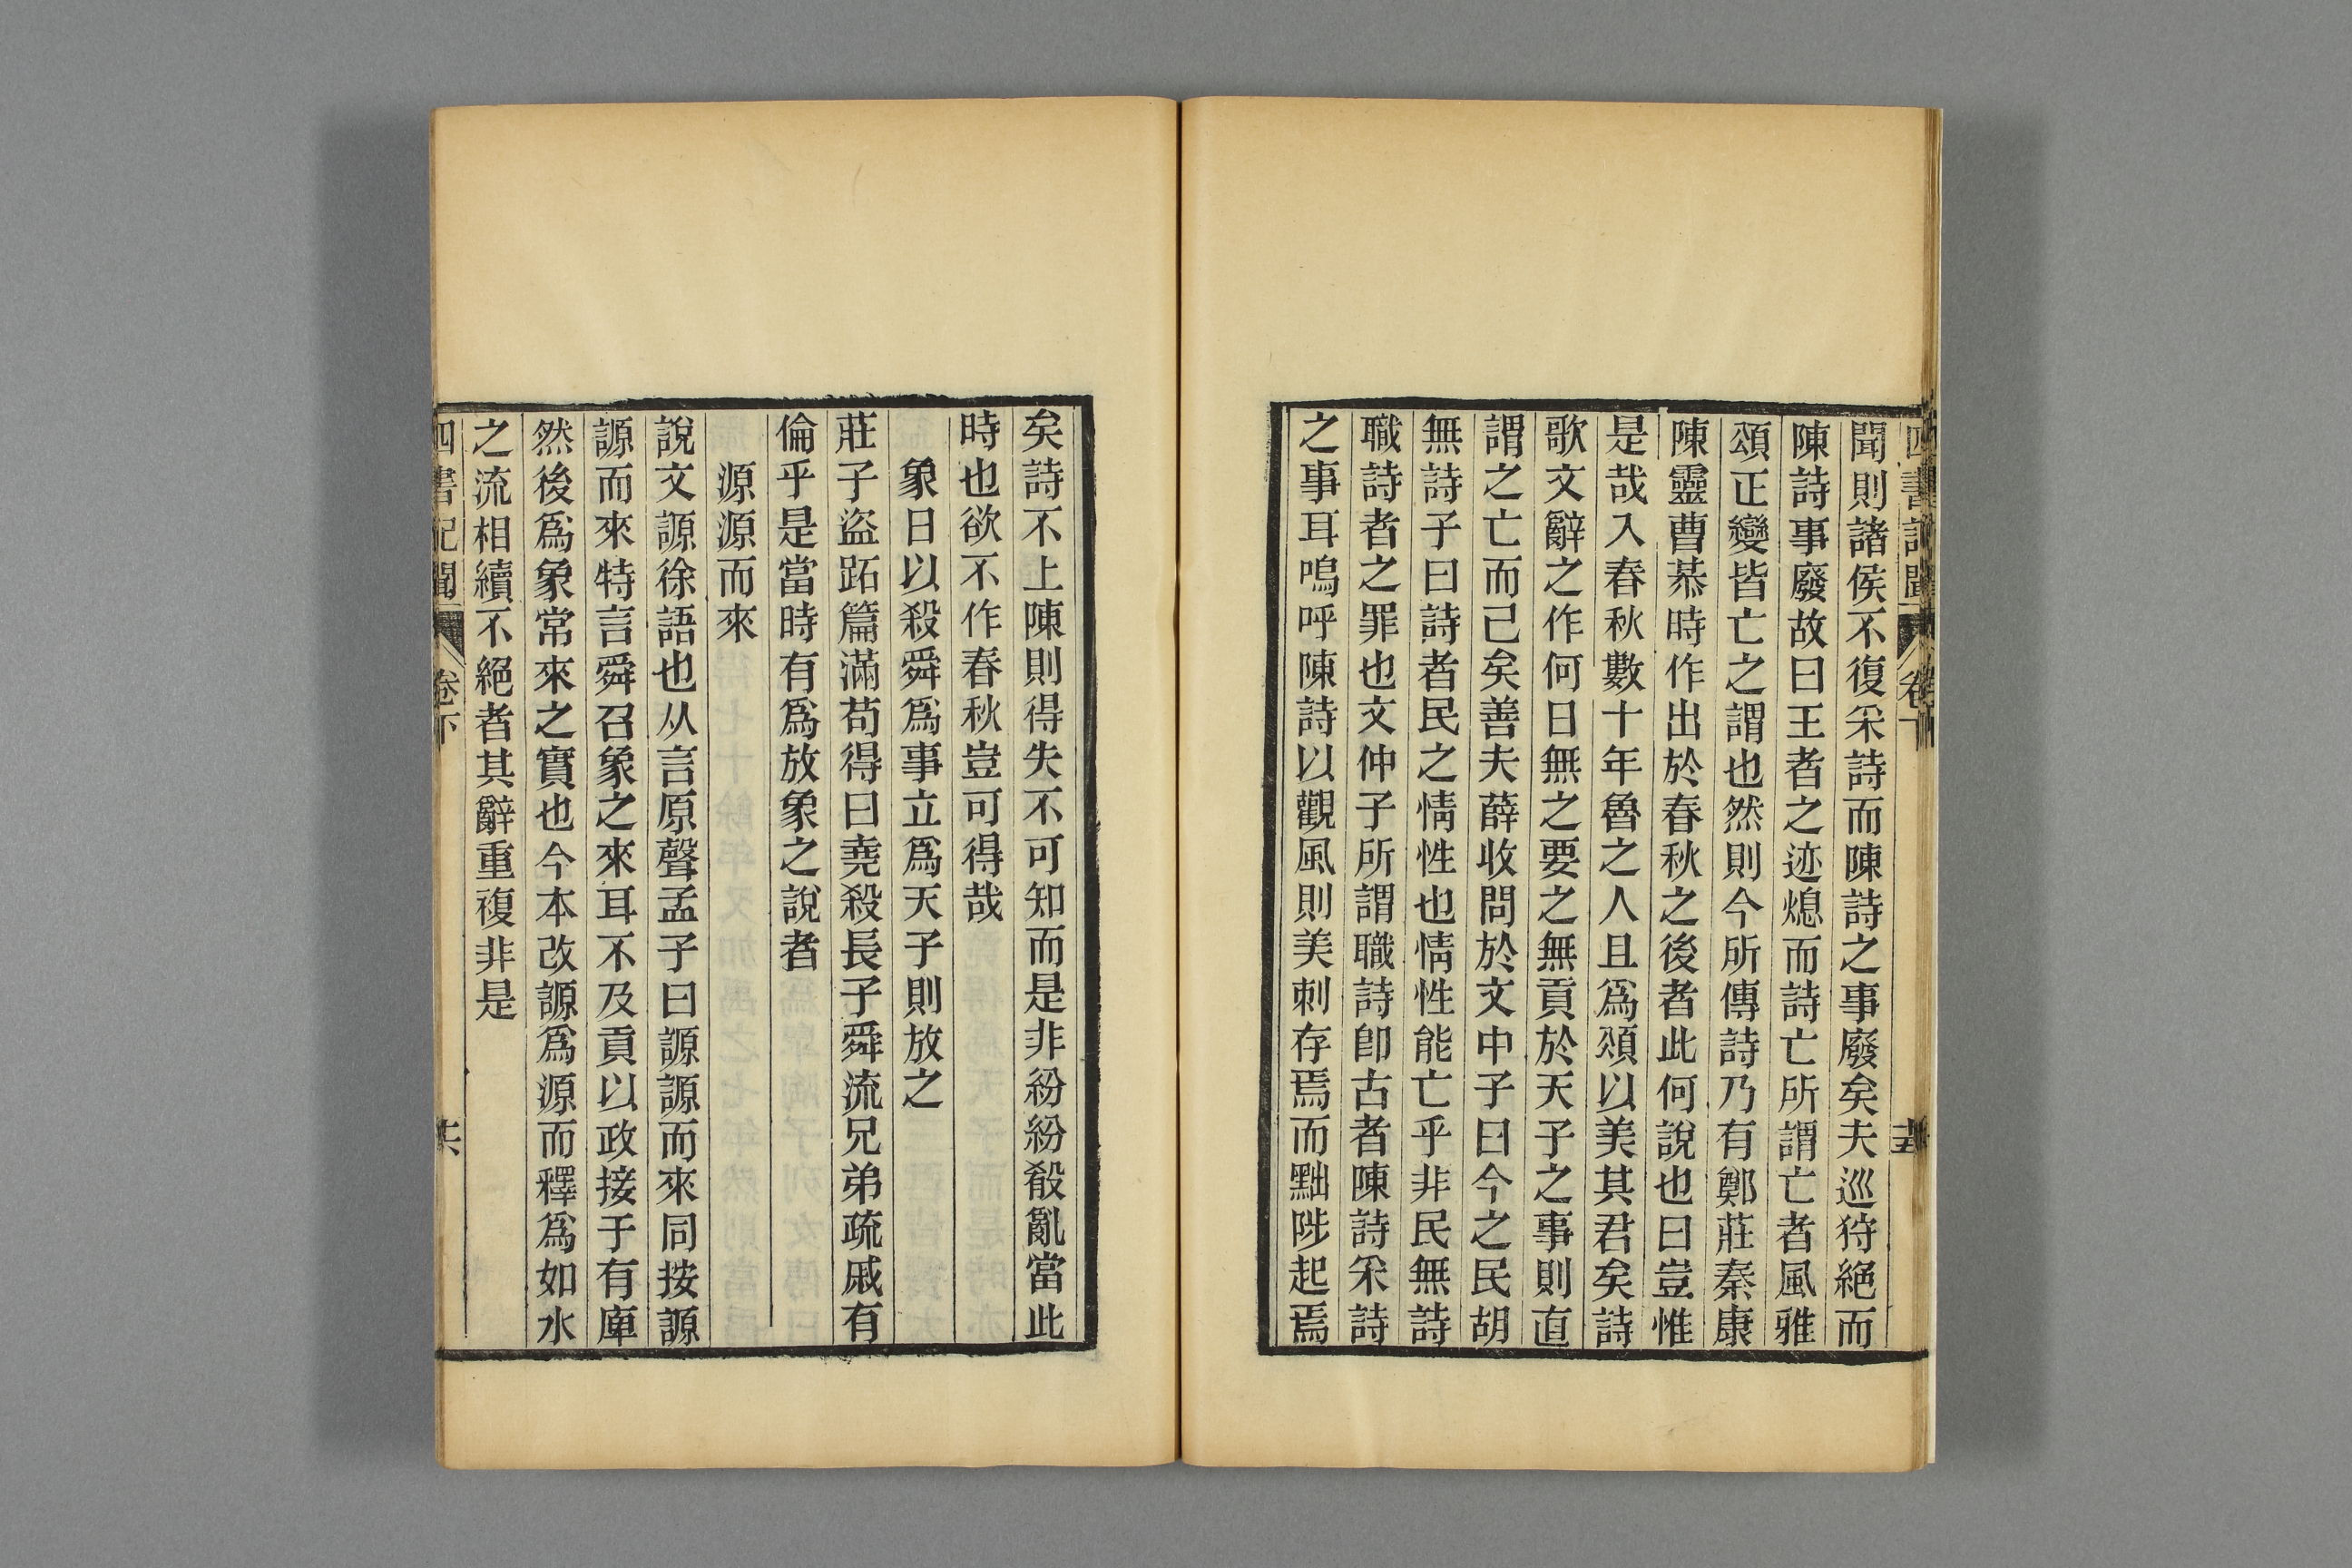 四書記聞 卷下 十五
聞則諸侯不復采詩而陳詩之事廢矣夫巡狩絕而
陳詩事廢故曰王者之迹熄而詩亡所謂亡者風雅
頌正變皆亡之謂也然則今所傳詩乃有鄭莊秦康
陳靈曹恭時作出於春秋之後者此何說也曰豈惟
是哉入春秋數十年魯之人且爲頌以美其君矣詩
歌文辭之作何日無之要之無貢於天子之事則直
謂之亡而已矣善夫薛收問於文中子曰今之民胡
無詩子曰詩者民之情性也情性能亡乎非民無詩
職詩者之罪也文仲子所謂職詩卽古者陳詩采詩
之事耳嗚呼陳詩以觀風則美刺存焉而黜陟起焉
矣詩不上陳則得失不可知而是非紛紛殽亂當此
時也欲不作春秋豈可得哉
象日以殺舜爲事立爲天子則放之
莊子盜跖篇滿苟得曰堯殺長子舜流兄弟疏戚有
倫乎是當時有爲放象之說者
源源而來
說文謜徐語也从言原聲孟子曰謜謜而來同按謜
謜而來特言舜召象之來耳不及貢以政接于有庳
然後爲象常來之實也今本改謜爲源而釋爲如水
之流相續不絕者其辭重複非是
四書記聞 卷下 十六